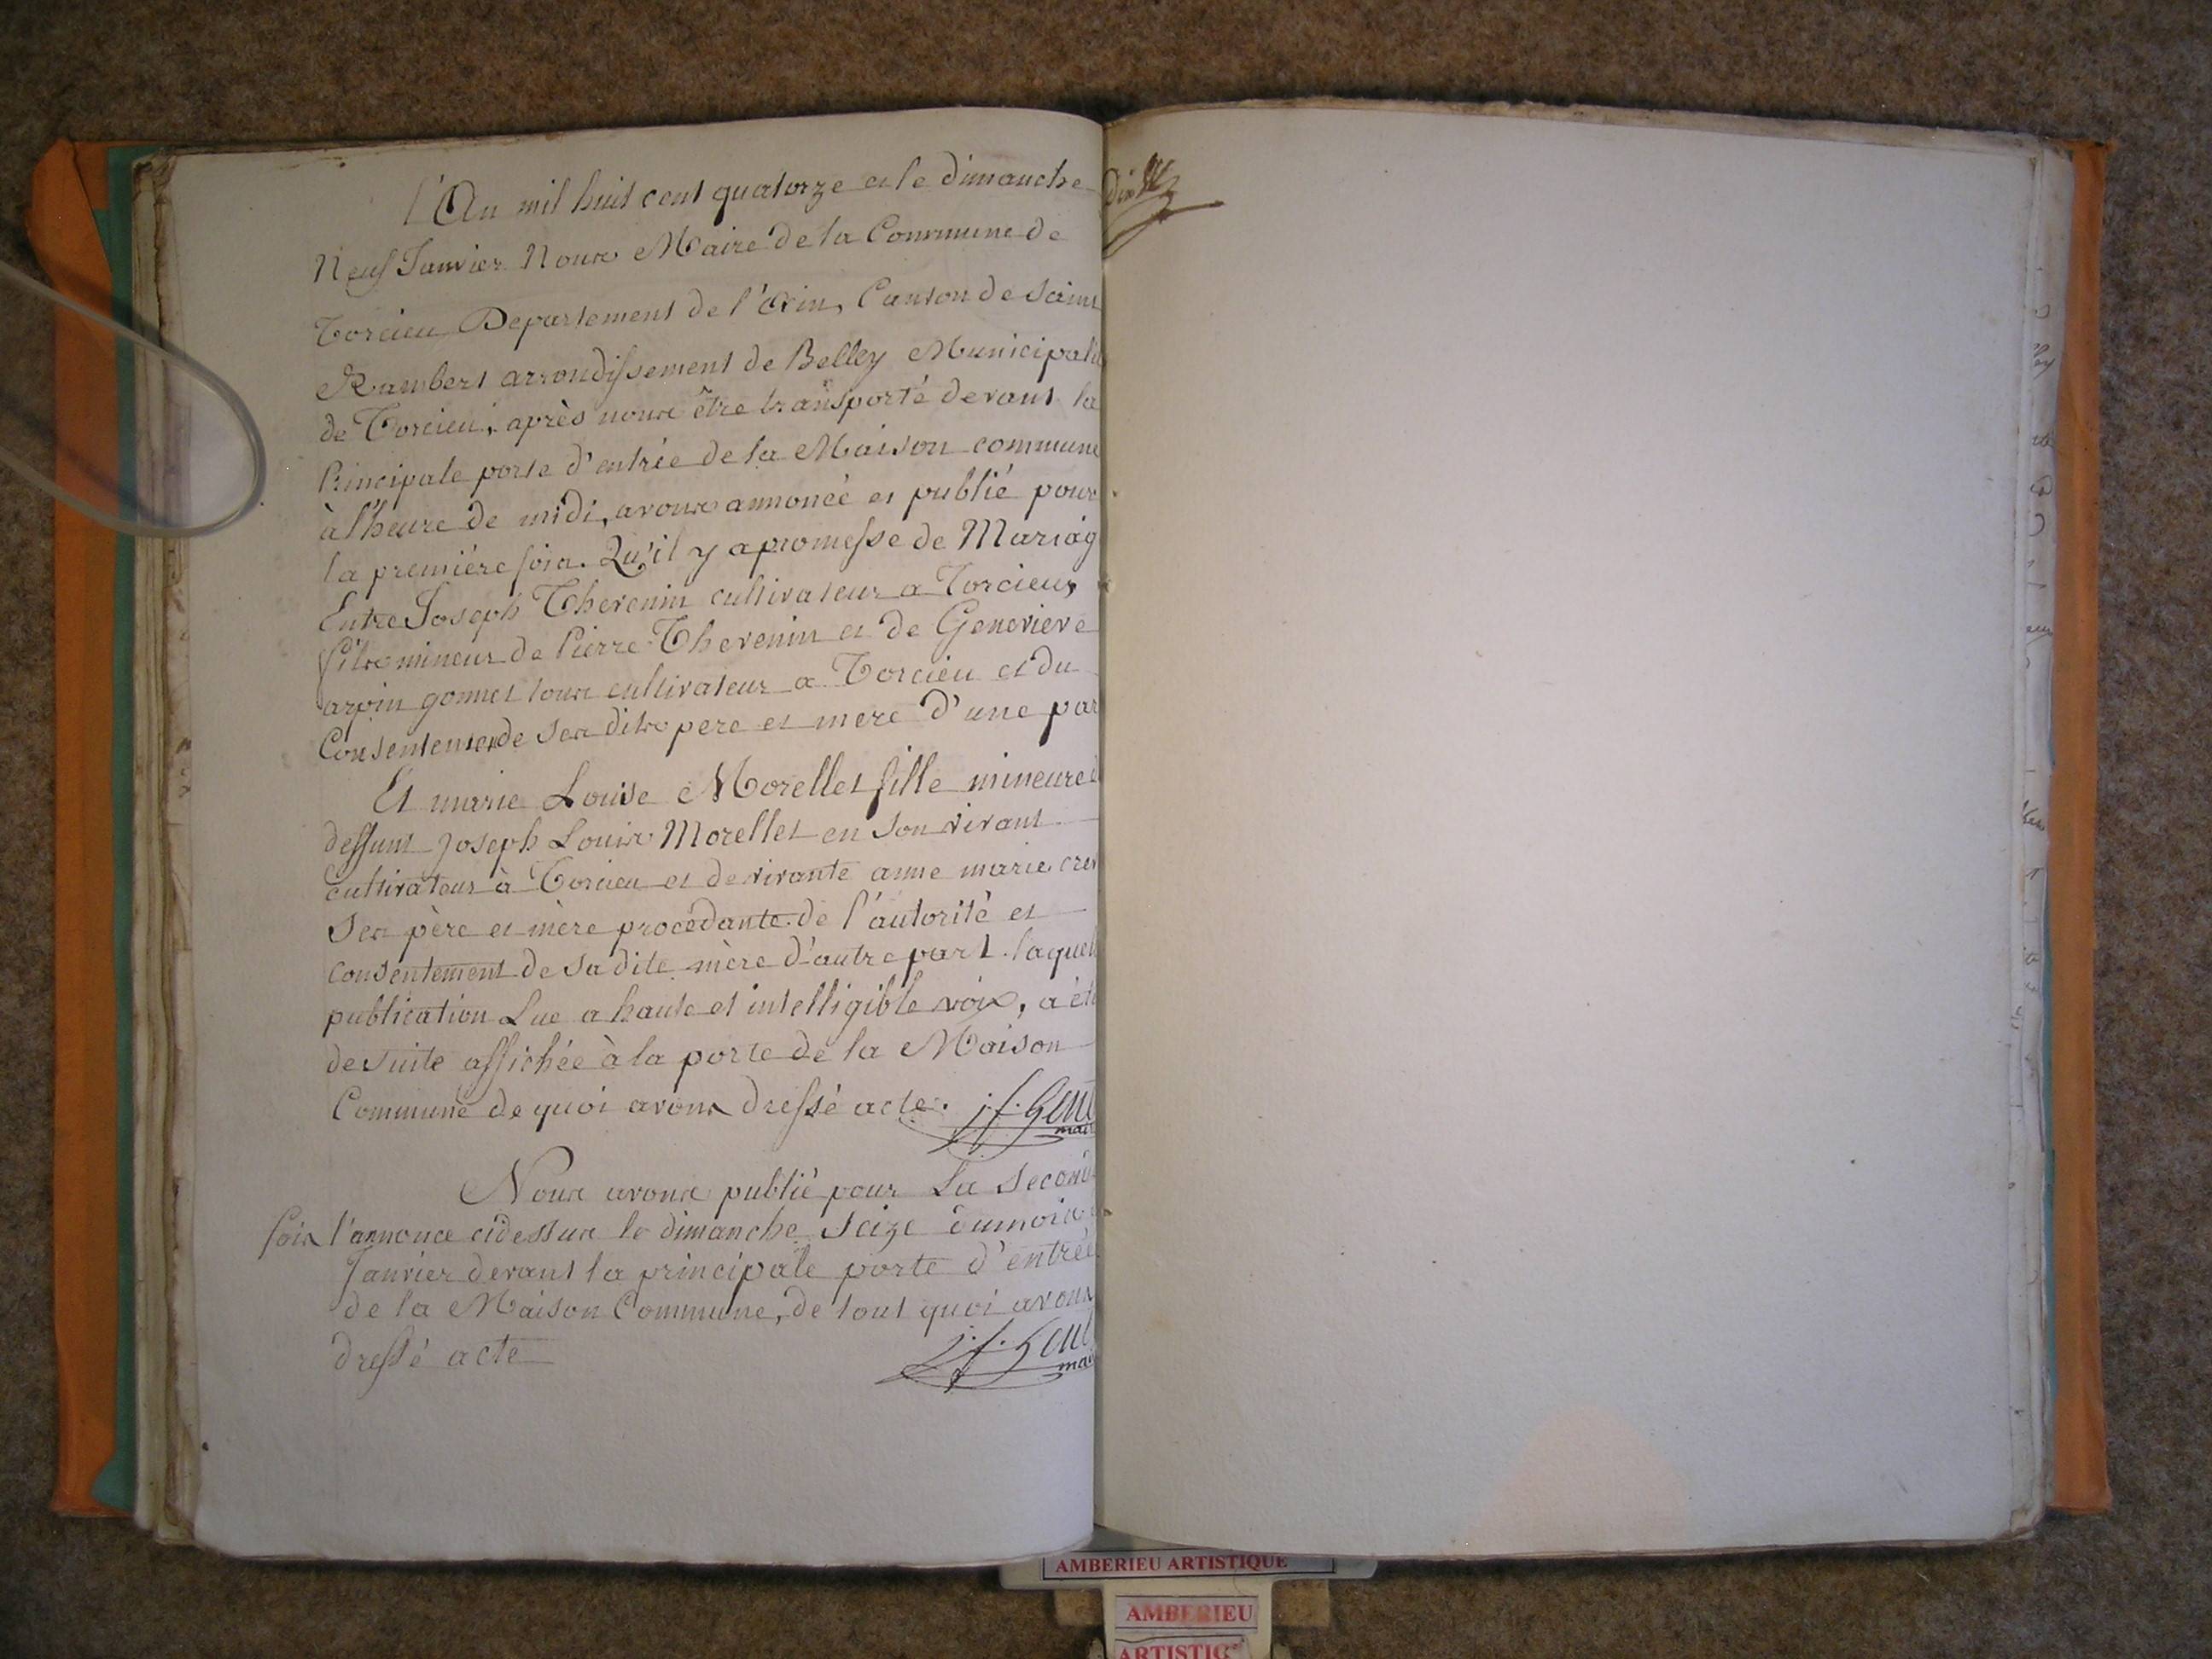 l'An mil huit cent quatorze et le dimanche
Neuf Janvier Nous Maire de la Commune de
Torcieu Departement de l'Ain, Canton de Saint
Rambert arrondissement de Belley Municipali
de Torcieu, après nous être transporté devant la
Principale porte d'entrée de la Maison commune
à l'heure de midi, avons annoncé et publié pour
la première fois. Qu'il y a promesse de Mariag
Entre Joseph Thevenin cultivateur a Torcieu,
fils mineur de Pierre Thevenin et de Genevieve
arpin gonnet tous cultivateur a Torcieu et du
Consentement de ses dits pere et mere d'une par
Et marie Louise Morellet fille mineure d
deffunt Joseph Louis Morellet en son vivant
cultivateur à Torcieu et de vivante anne marie
Ses père et mère procédante de l'autorité et
consentement de sa dite mère d'autre part. laquel
publication Lue a haute et intelligible voix, a été
de suite affichée à la porte de la Maison
Commune de quoi avons dressé acte. j. f. Gout
mair
Nous avons publié pour La second
fois l'annonce cidessus le dimanche seize du mois
Janvier devant la principale porte d'entrée
de la Maison Commune, de tout quoi avons
dressé acte j. f. Gout
mai
dix
AMBERIEU ARTISTIQUE
AMBERIEU
ARTISTIQ